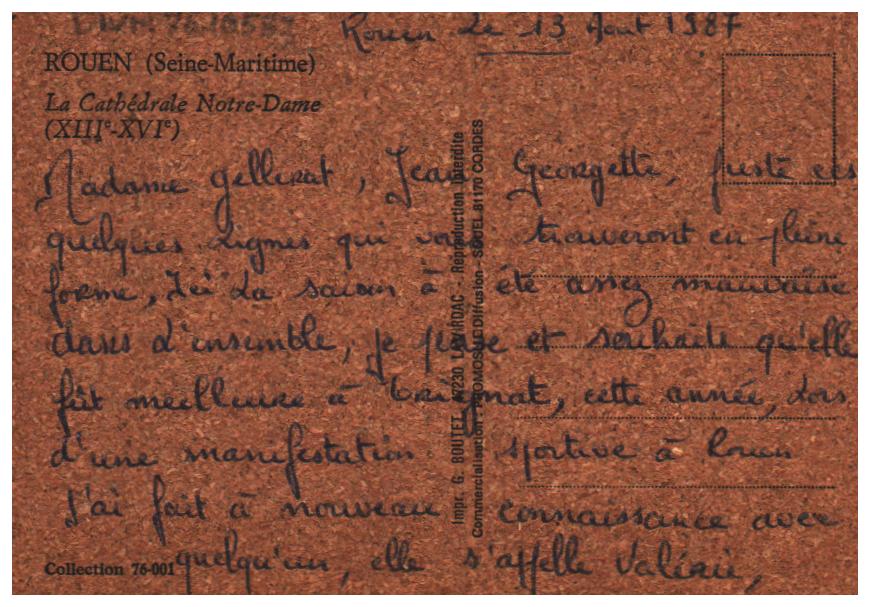 Rouen Le 13 Août 1987
ROUEN (Seine-Maritime)
La Cathédrale Notre-Dame
(XIIIe-XVIe)
Madame Gellerat, Jean Georgette, juste ces
quelques lignes qui vous trouveront en pleine
forme, Ici La saison à été assez mauvaise
dans L'ensemble, je pense et souhaite qu'elle
fût meilleure à, cette année, Lors
d'une manifestation sportive à Rouen
J'ai fait à nouveau connaissance avec
quelqu'un, elle s'appelle Valérie,
Collection 76-001
Impr. G. BOUTET - Reproduction Interdite
Commercialisation Diffusion - 81170 CORDES